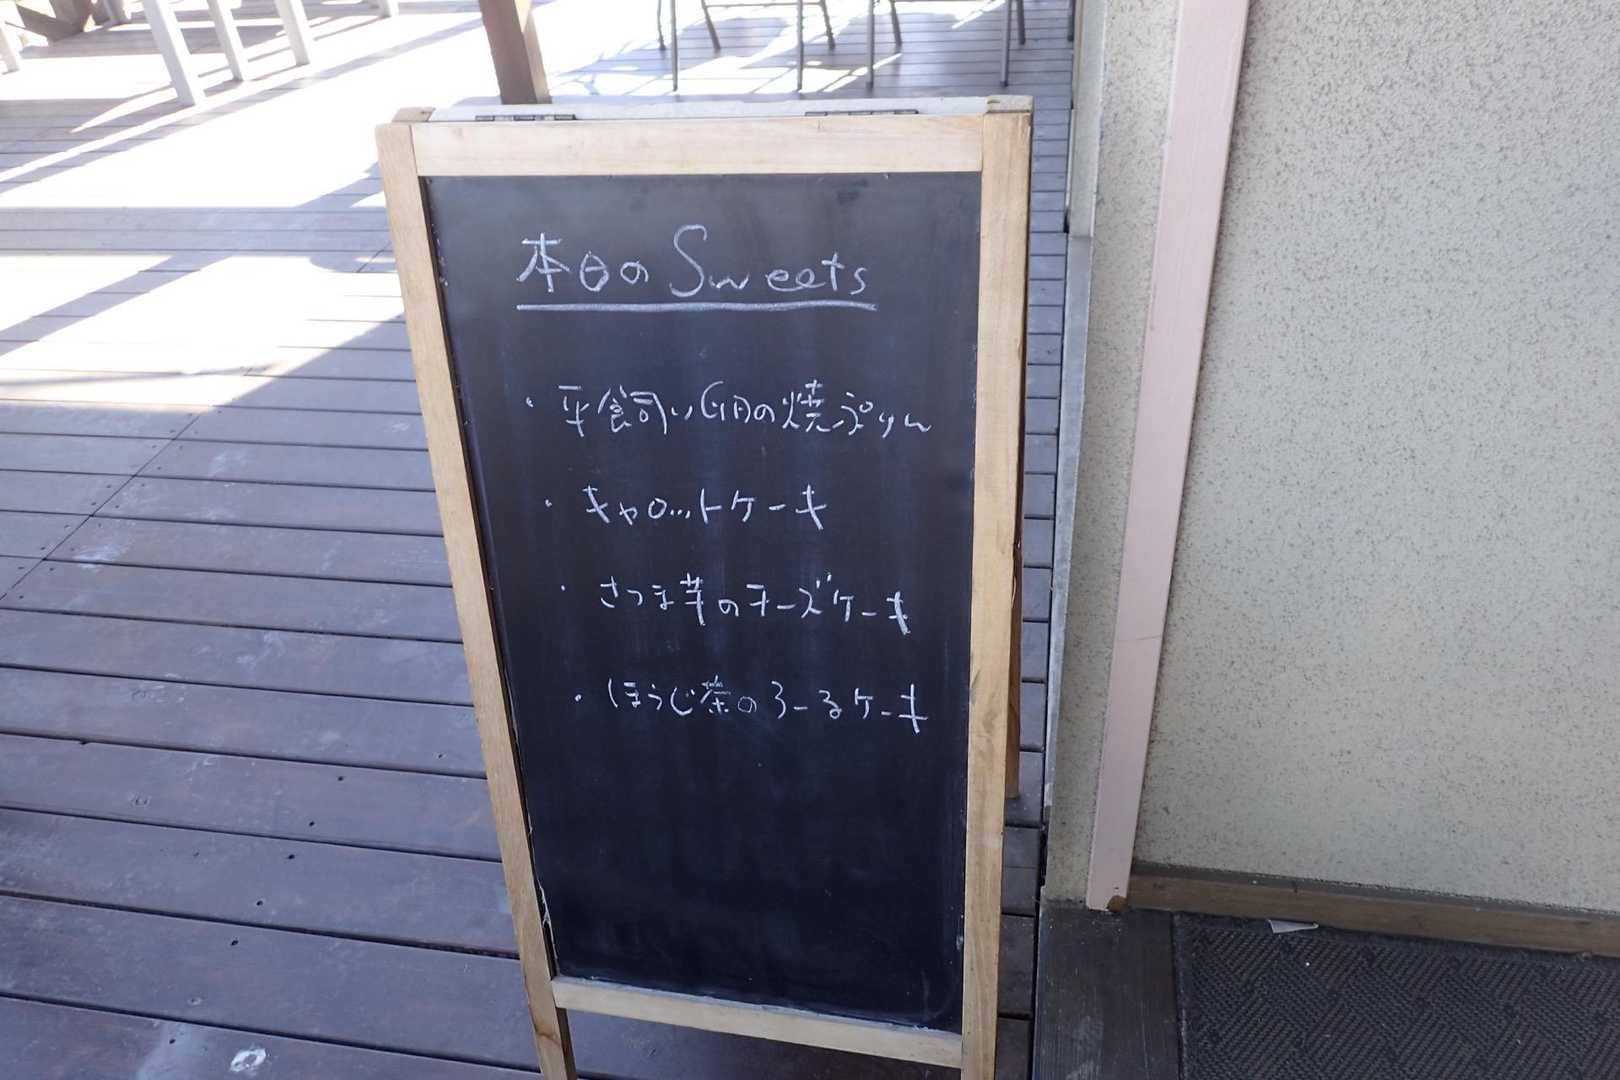 本日のSweets
・平飼い卵の焼ぷりん
・キャロットケーキ
・さつま芋のチーズケーキ
・ほうじ茶のろーるケーキ